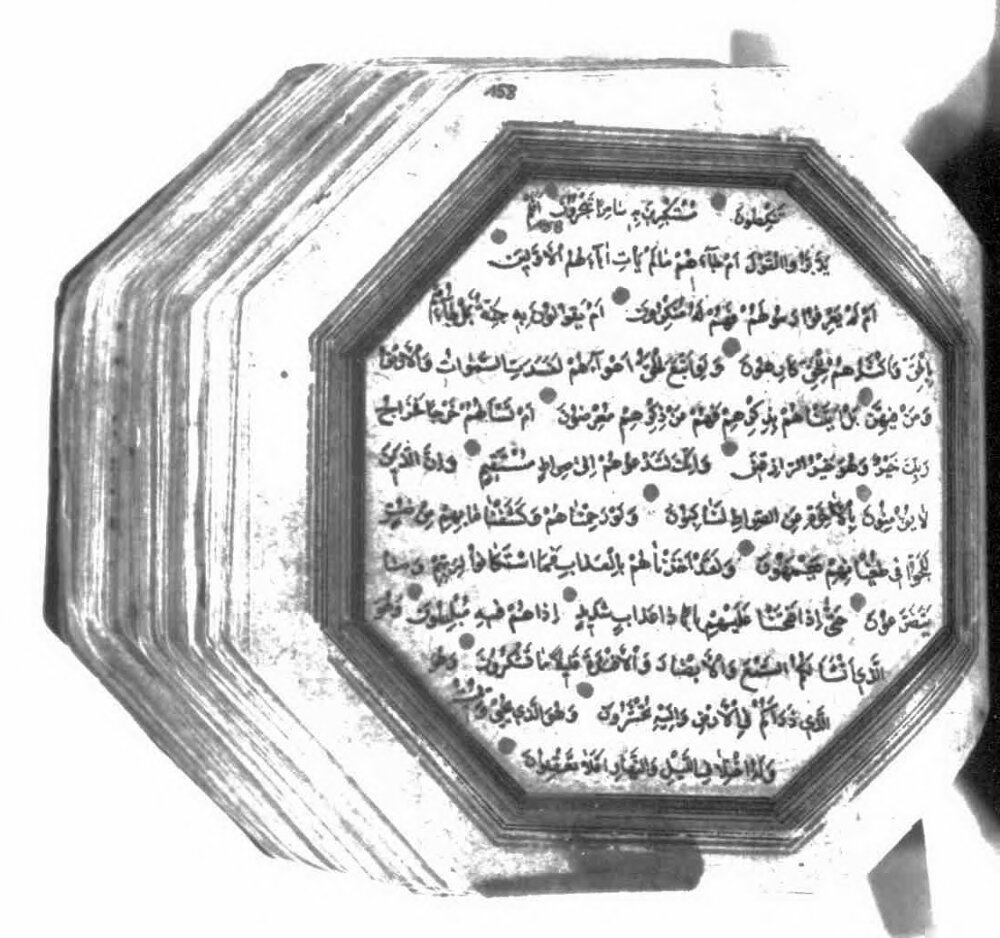 158
تنكصون مستكبرين به سامرا تهجرون افلم
يدبروا القول ام جاءهم ما لم يات اباءهم الاولين
ام لم يعرفوا رسولهم فهم له منكرون ام يقولون به جنة بل جاءهم
بالحق واكثرهم للحق كارهون ولو اتبع الحق اهواءهم لفسدت السموات والارض
ومن فيهن بل اتيناهم بذكرهم فهم عن ذكرهم معرضون ام تسالهم خرجا فخراج
ربك خير وهو خير الرازقين وانك لتدعوهم الى صراط مستقيم وان الذين
لا يؤمنون بالاخرة عن الصراط لناكبون ولو رحمناهم وكشفنا ما بهم من ضر
للجوا في طغيانهم يعمهون ولقد اخذناهم بالعذاب فما استكانوا لربهم وما
يتضرعون حتى اذا فتحنا عليهم بابا ذا عذاب شديد اذا هم فيه مبلسون وهو
الذي انشا لكم السمع والابصار والافئدة قليلا ما تشكرون وهو
الذي ذراكم في الارض واليه تحشرون وهو الذي يحيي ويميت
وله اختلاف الليل والنهار افلا تعقلون